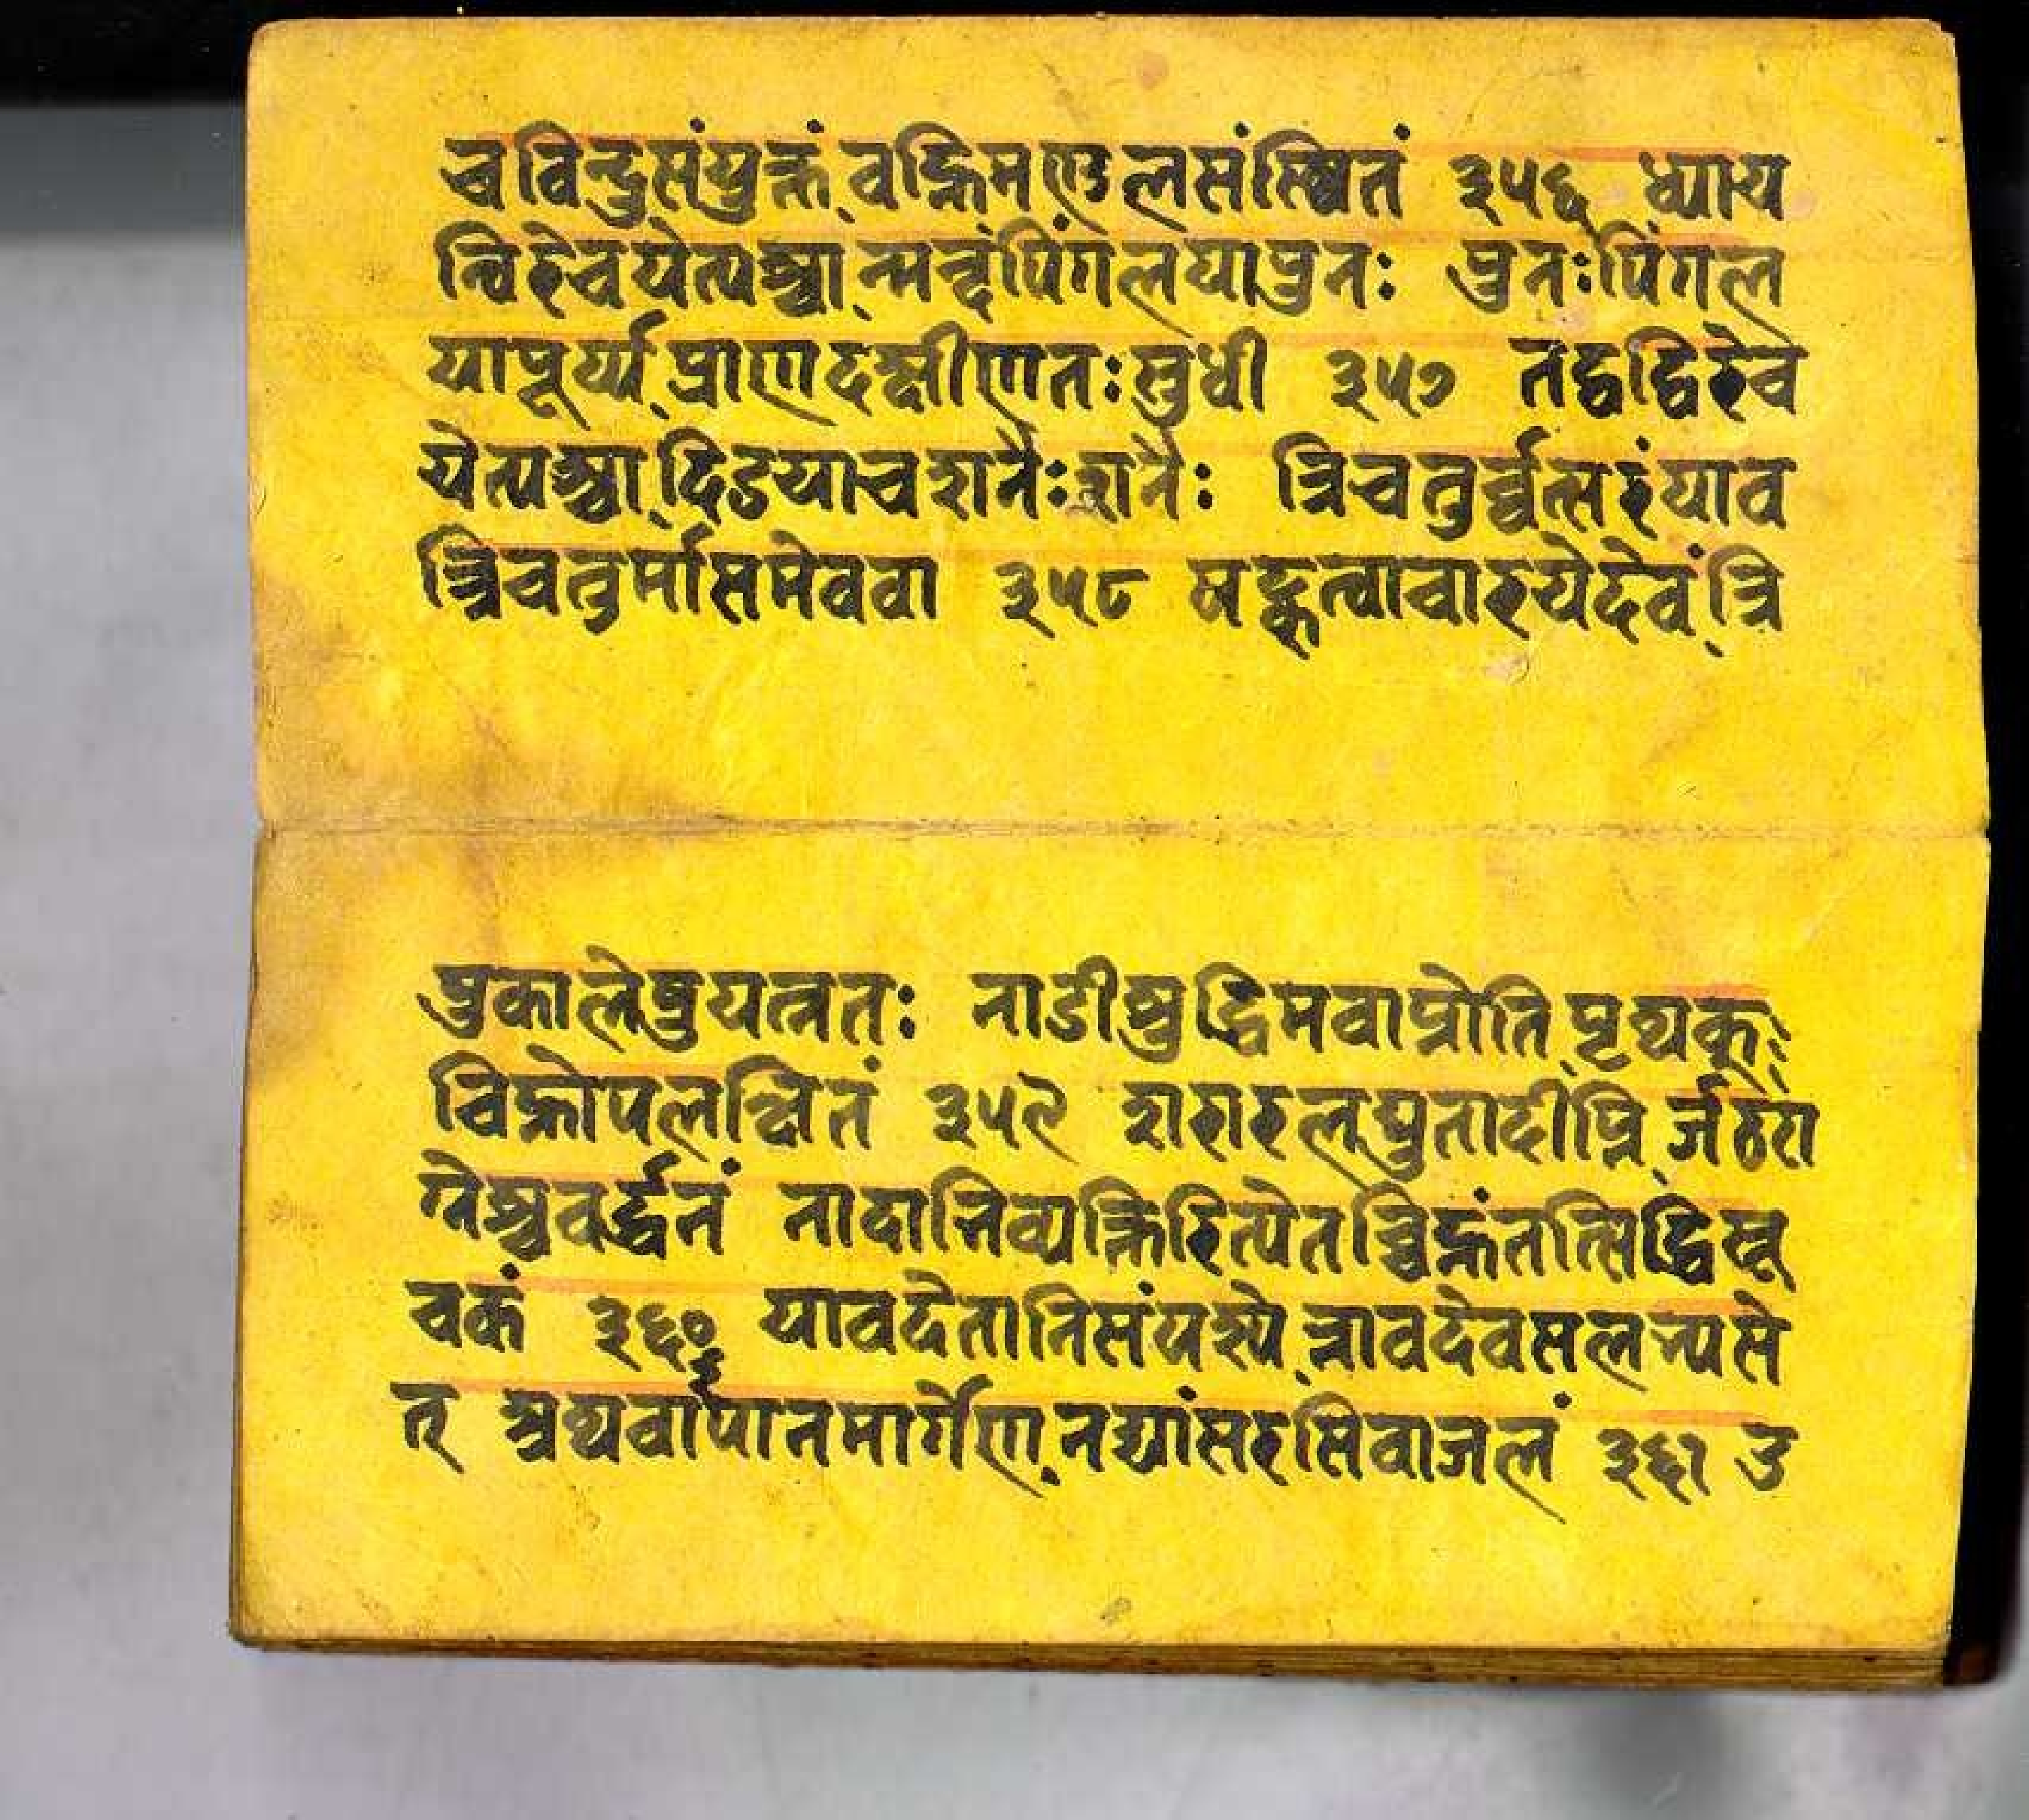 चविन्दुसंयुक्तं वह्निमण्डलसंस्थितं ३५६ ध्याय
न्विरेचयेत्पश्चान्मन्त्रं पिंगलयापुनः पुनःपिंगल
यापूर्य्य प्राणदक्षीणतःसुधी ३५७ तद्वद्विरेच
येत्पश्चादिडयाचशनैःशनैः त्रिचतुर्व्वत्सरंयाव
त्त्रिचतुर्मासमेववा ३५८ षट्कृत्वाचारयेदेवं त्रि
षुकालेषुयत्नतः नाडीशुद्धिमवाप्नोति पृथक्
चिह्नोपलक्षितं ३५९ शरीरलघुतादीप्ति र्जठरा
ग्नेश्चवर्द्धनं नादानिव्यक्तिरित्येतच्चिह्नंतत्सिद्धिसू
चकं ३६० यावदेतानिसंपश्ये त्तावदेवसलभ्यसे
त् अथवापानमार्गेण नद्यांसरसिवाजलं ३६१ उ